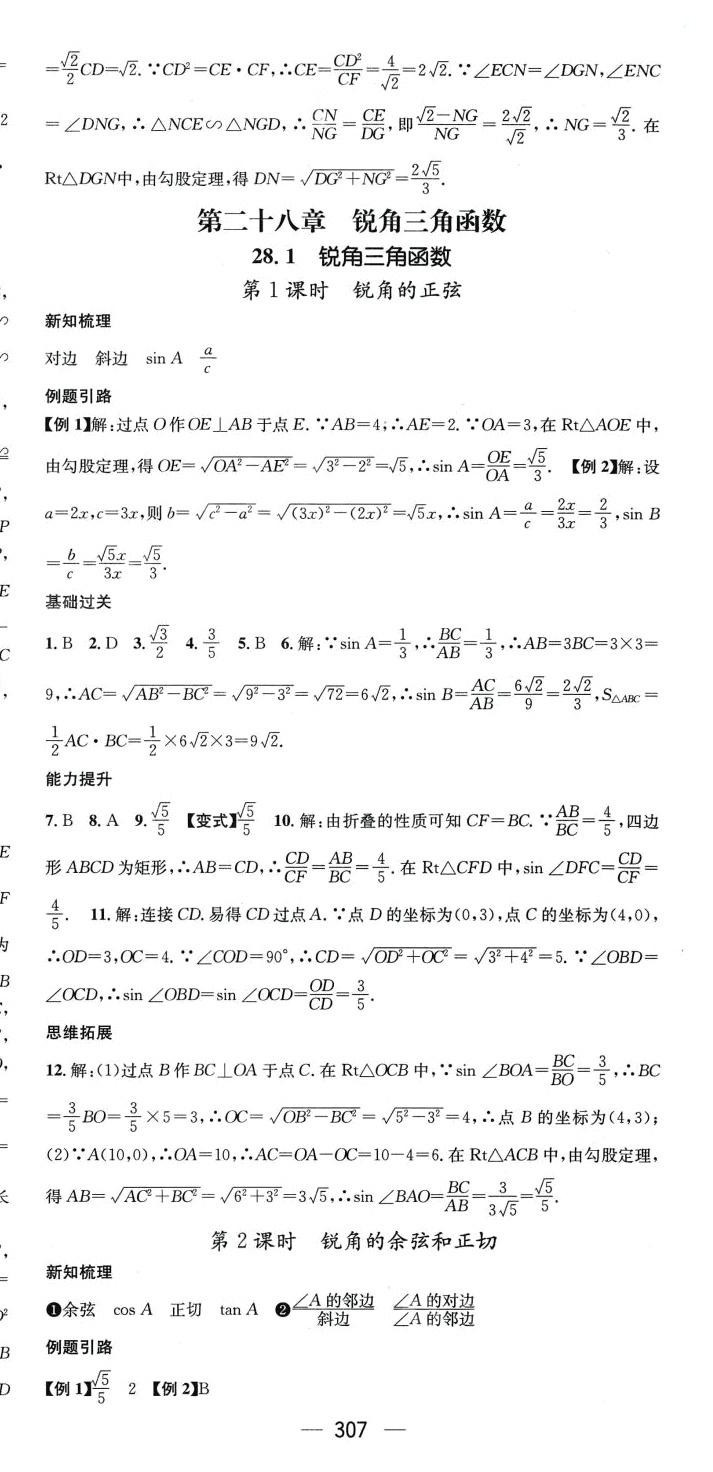 =√2/2 CD=√2. ∵CD²=CE·CF,∴CE=CD²/CF=4/√2=2√2. ∵∠ECN=∠DGN,∠ENC
=∠DNG,∴△NCE∽△NGD,∴CN/NG=CE/DG,即(√2-NG)/NG=2√2/√2,∴NG=√2/3. 在
Rt△DGN中,由勾股定理,得 DN=√(DG²+NG²)=2√5/3.
第二十八章 锐角三角函数
28.1 锐角三角函数
第1课时 锐角的正弦
新知梳理
对边 斜边 sin A a/c
例题引路
【例1】解:过点O作OE⊥AB于点E. ∵AB=4,∴AE=2. ∵OA=3,在Rt△AOE中,
由勾股定理,得OE=√(OA²-AE²)=√(3²-2²)=√5,∴sin A=OE/OA=√5/3. 【例2】解:设
a=2x,c=3x,则b=√(c²-a²)=√((3x)²-(2x)²)=√5x,∴sin A=a/c=2x/3x=2/3,sin B
=b/c=√5x/3x=√5/3.
基础过关
1. B 2. D 3. √3/2 4. 3/5 5. B 6. 解:∵sin A=1/3,∴BC/AB=1/3,∴AB=3BC=3×3=
9,∴AC=√(AB²-BC²)=√(9²-3²)=√72=6√2,∴sin B=AC/AB=6√2/9=2√2/3,S△ABC=
1/2 AC·BC=1/2×6√2×3=9√2.
能力提升
7. B 8. A 9. √5/5 【变式】√5/5 10. 解:由折叠的性质可知CF=BC. ∵AB/BC=4/5,四边
形ABCD为矩形,∴AB=CD,∴CD/CF=AB/BC=4/5. 在Rt△CFD中,sin ∠DFC=CD/CF=
4/5. 11. 解:连接CD. 易得CD过点A. ∵点D的坐标为(0,3),点C的坐标为(4,0),
∴OD=3,OC=4. ∵∠COD=90°,∴CD=√(OD²+OC²)=√(3²+4²)=5. ∵∠OBD=
∠OCD,∴sin ∠OBD=sin ∠OCD=OD/CD=3/5.
思维拓展
12. 解:(1)过点B作BC⊥OA于点C. 在Rt△OCB中,∵sin ∠BOA=BC/BO=3/5,∴BC
=3/5 BO=3/5×5=3,∴OC=√(OB²-BC²)=√(5²-3²)=4,∴点B的坐标为(4,3);
(2)∵A(10,0),∴OA=10,∴AC=OA-OC=10-4=6. 在Rt△ACB中,由勾股定理,
得AB=√(AC²+BC²)=√(6²+3²)=3√5,∴sin ∠BAO=BC/AB=3/3√5=√5/5.
第2课时 锐角的余弦和正切
新知梳理
❶余弦 cos A 正切 tan A ❷∠A的邻边/斜边 ∠A的对边/∠A的邻边
例题引路
【例1】√5/5 2 【例2】B
— 307 —